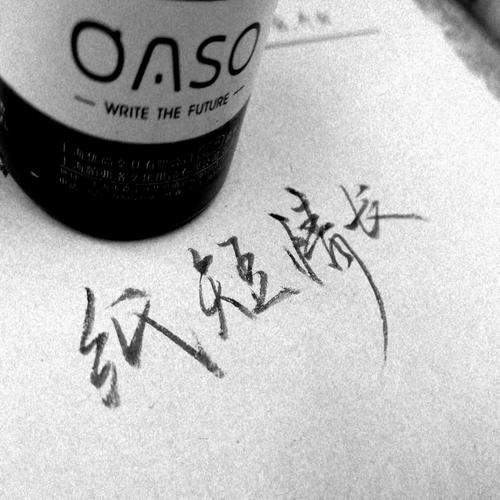 OASO
— WRITE THE FUTURE —
纸短情长